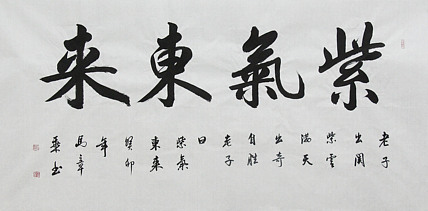 紫氣東来
老子
出關
紫雲
滿天
出奇
自勝
老子
曰
紫氣
東来
癸卯
年
馬章
乘书